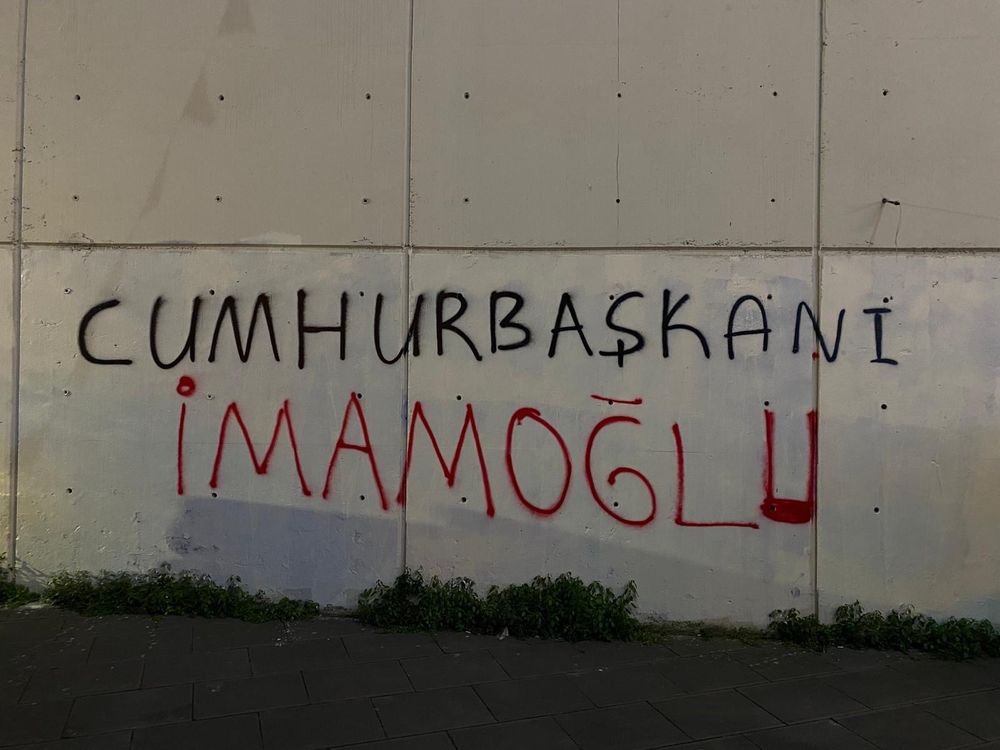 CUMHURBAŞKANI
İMAMOĞLU